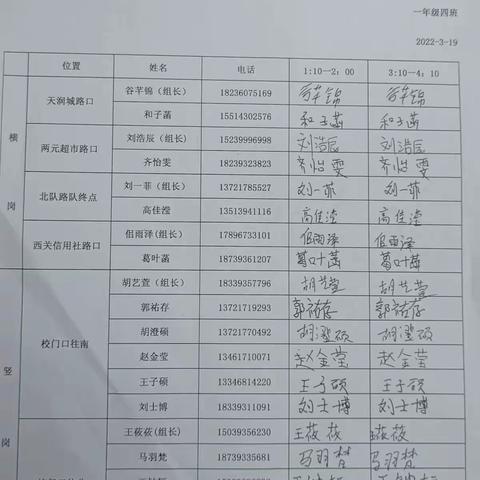 一年级四班
2022-3-19
位置 姓名 电话 1:10—2：00 3:10—4；10
横岗
天润城路口 谷芊锦（组长） 18236075169 谷芊锦 谷芊锦
和子菡 15514302576 和子菡 和子菡
两元超市路口 刘浩辰（组长) 15239996998 刘浩辰 刘浩辰
齐怡雯 18239323823 齐怡雯 齐怡雯
北队路队终点 刘一菲（组长） 13721785527 刘一菲 刘一菲
高佳滢 13513941116 高佳滢 高佳滢
西关信用社路口 但雨泽(组长） 17896733101 但雨泽 但雨泽
葛叶菡 18739361207 葛叶菡 葛叶菡
竖岗
校门口往南 胡艺萱（组长） 18339357796 胡艺萱 胡艺萱
郭祐存 13721719293 郭祐存 郭祐存
胡澄硕 13721770492 胡澄硕 胡澄硕
赵金莹 13461710071 赵金莹 赵金莹
王子硕 13346814220 王子硕 王子硕
刘士博 18339311091 刘士博 刘士博
王莜莜(组长） 15039356230 王莜莜 王莜莜
马羽梵 18739335681 马羽梵 马羽梵